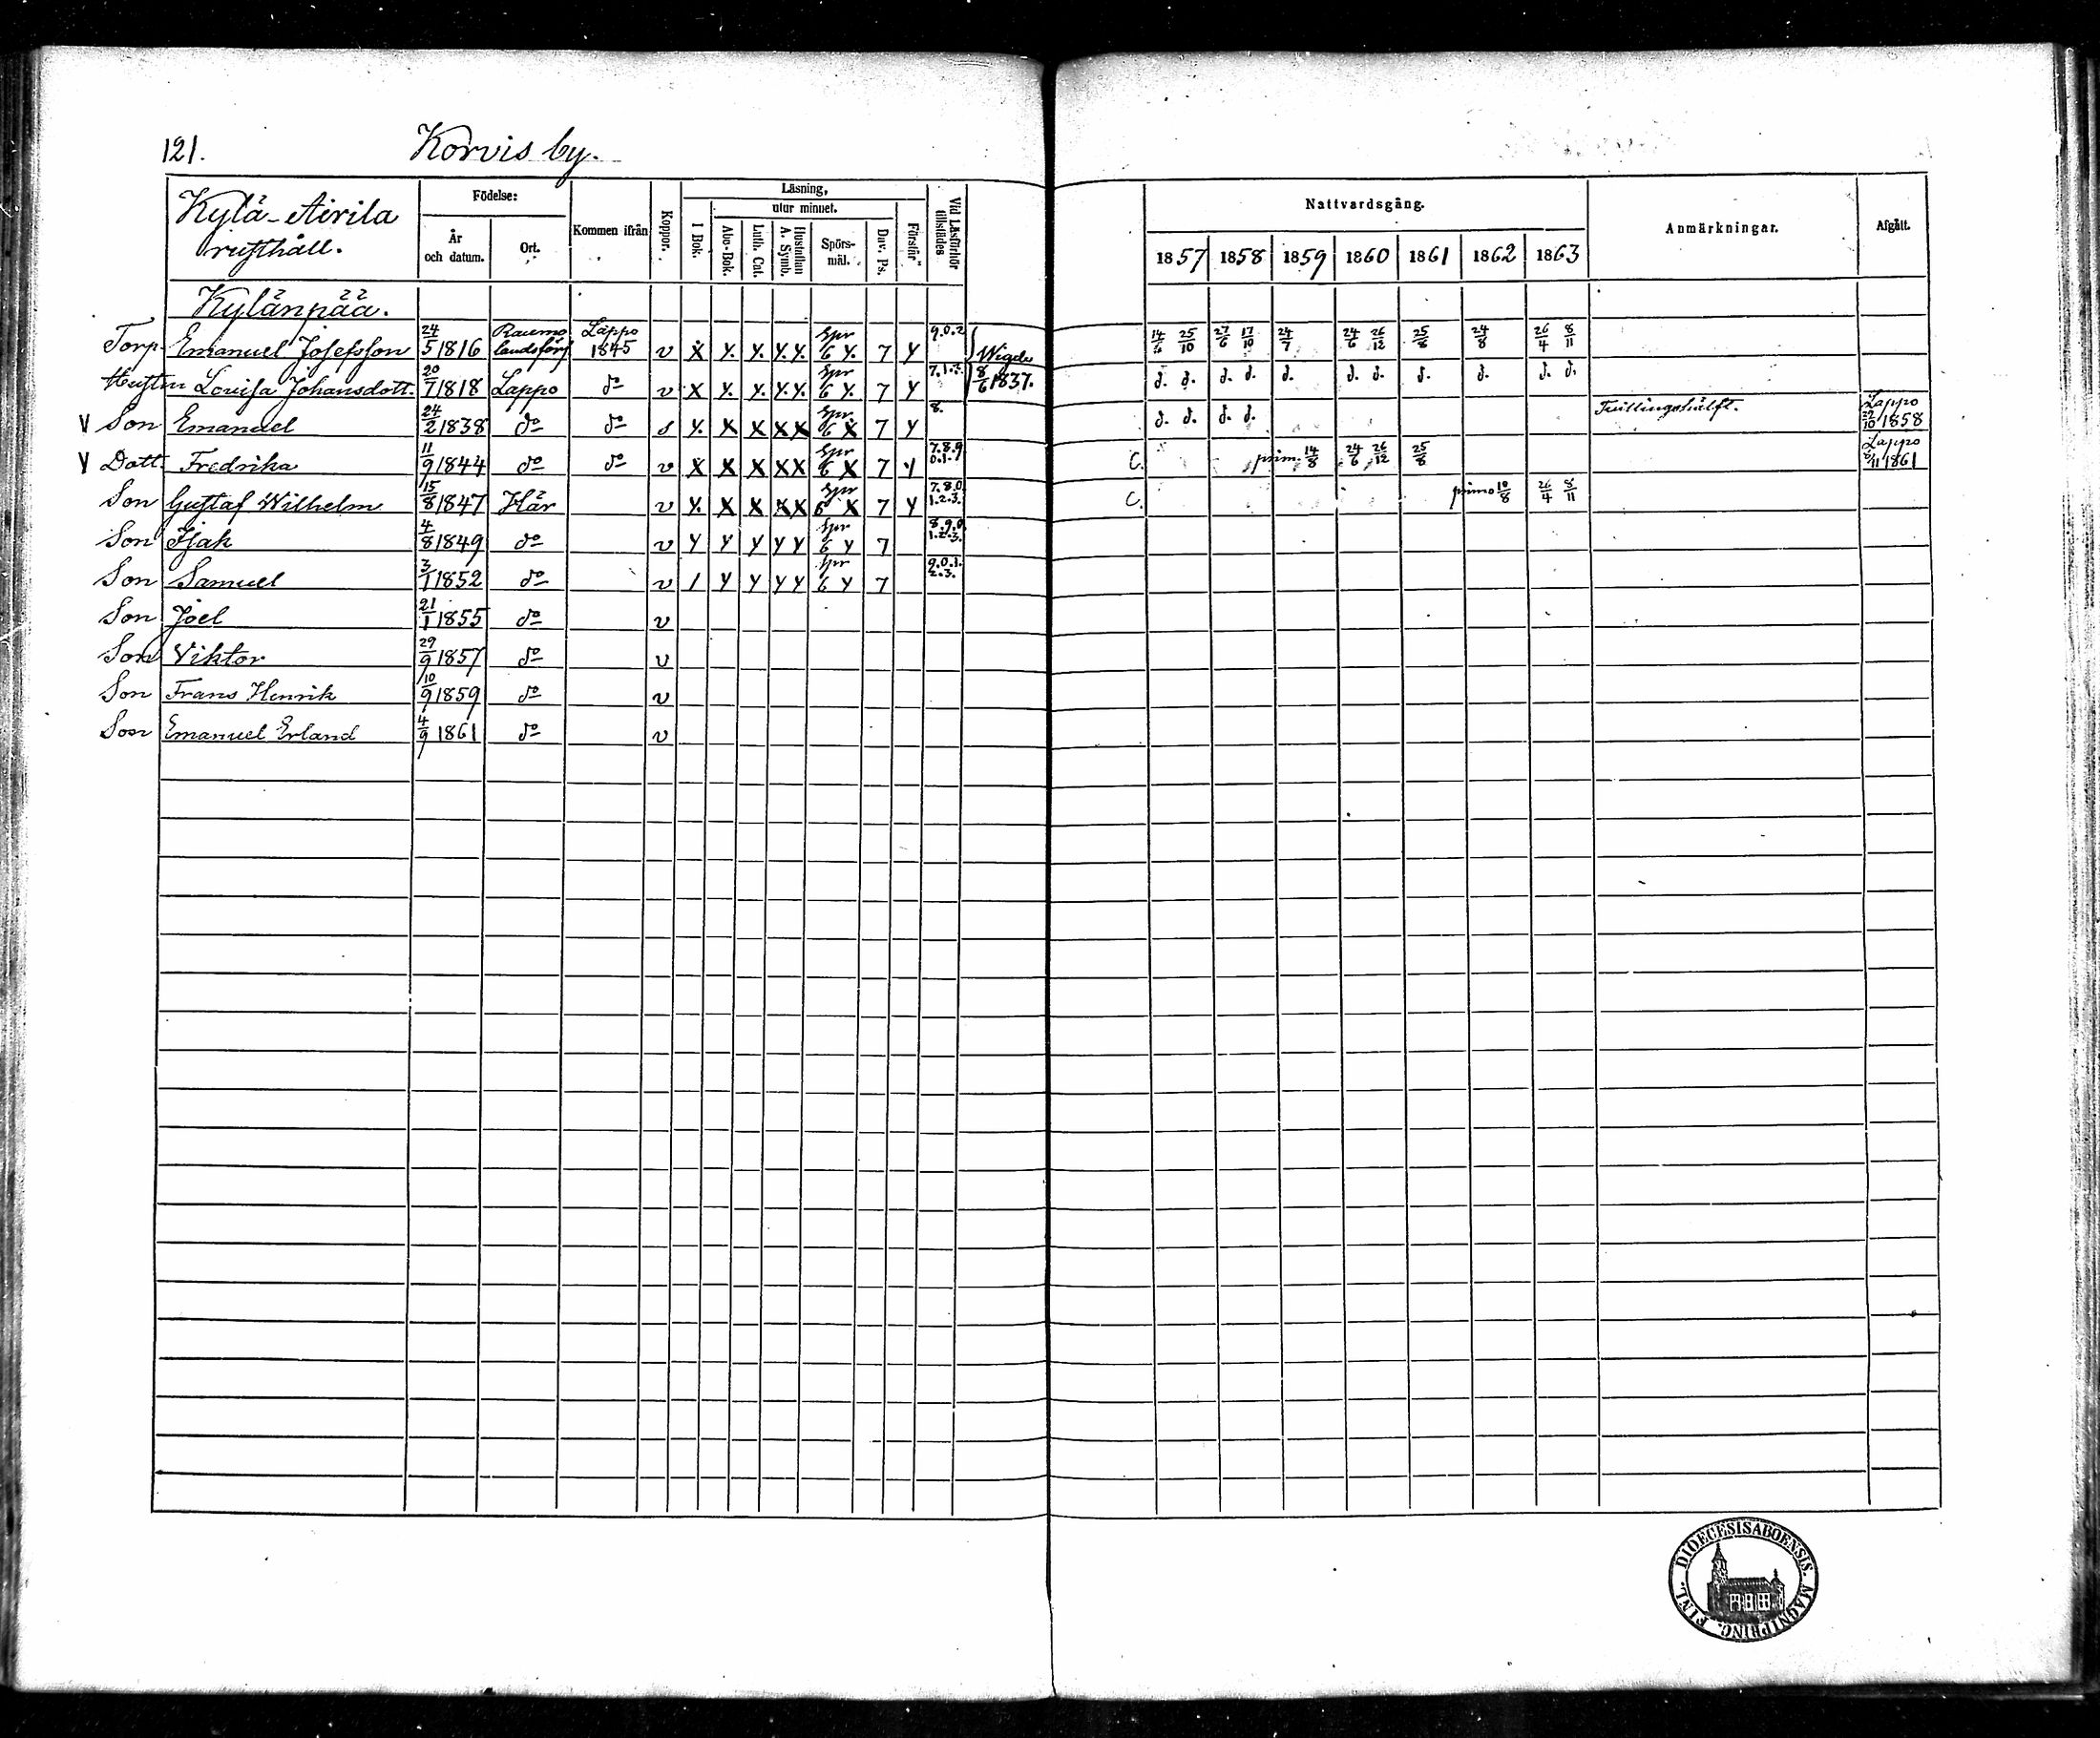 121. Korvis by.
Kylä-Airila
rusthåll.
Födelse: Kommen ifrån Koppor. Läsning, Vid Läsförhör tillstädes Nattvardsgång. Anmärkningar. Afgått.
År och datum. Ort. I Bok. utur minnet. Förstår
Abc-Bok. Luth. Cat. Hustaflan A. Symb. Spörs-mål. Dav. Ps.
1857 1858 1859 1860 1861 1862 1863
Kylänpää.
Torp. Emanuel Josefsson 24/5 1816 Raumo landsförs Lappo 1845 v X Y. Y. Y. Y. Spr 6 Y. 7 Y 9.0.2 Wigde 8/6 1837. 14/6 25/10 27/6 17/10 24/7 24/6 26/12 25/8 24/8 26/4 8/11
Hustrun Lovisa Johansdott. 20/7 1818 Lappo do v X Y. Y. Y. Y. Spr 6 Y. 7 Y d. d. d. d. d. d. d. d. d. d. d.
V Son Emanuel 24/2 1838 do do s Y. X X X X Spr 6 X 7 Y 8. d. d. d. d. Tvillingshälft. Lappo 29/10 1858
V Dott. Fredrika 11/9 1844 do do v X X X X X Spr 6 X 7 Y 7.8.9 0.1. C. prim. 14/8 24/6 26/12 25/8 Lappo 1861
Son Gustaf Wilhelm 15/8 1847 Här v Y. X X X X Spr 6 X 7 Y 7.8.0 1.2.3. C. primo 10/8 26/4 8/11
Son Isak 4/8 1849 do v Y Y Y Y Y Spr 6 Y 7 8.9.0 1.2.3.
Son Samuel 3/1 1852 do v 1 Y Y Y Y Spr 6 Y 7 9.0.1. 2.3.
Son Joel 21/1 1855 do v
Son Viktor 29/9 1857 do v
Son Frans Henrik 10/9 1859 do v
Son Emanuel Erland 4/9 1861 do v
DIOECESIS ABOENSIS. MAGNI PRINC. FINL.